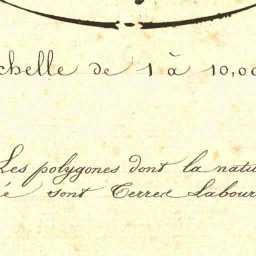 chelle de 1 à 10,00
Les polygones dont la natu
é sont Terres Labour